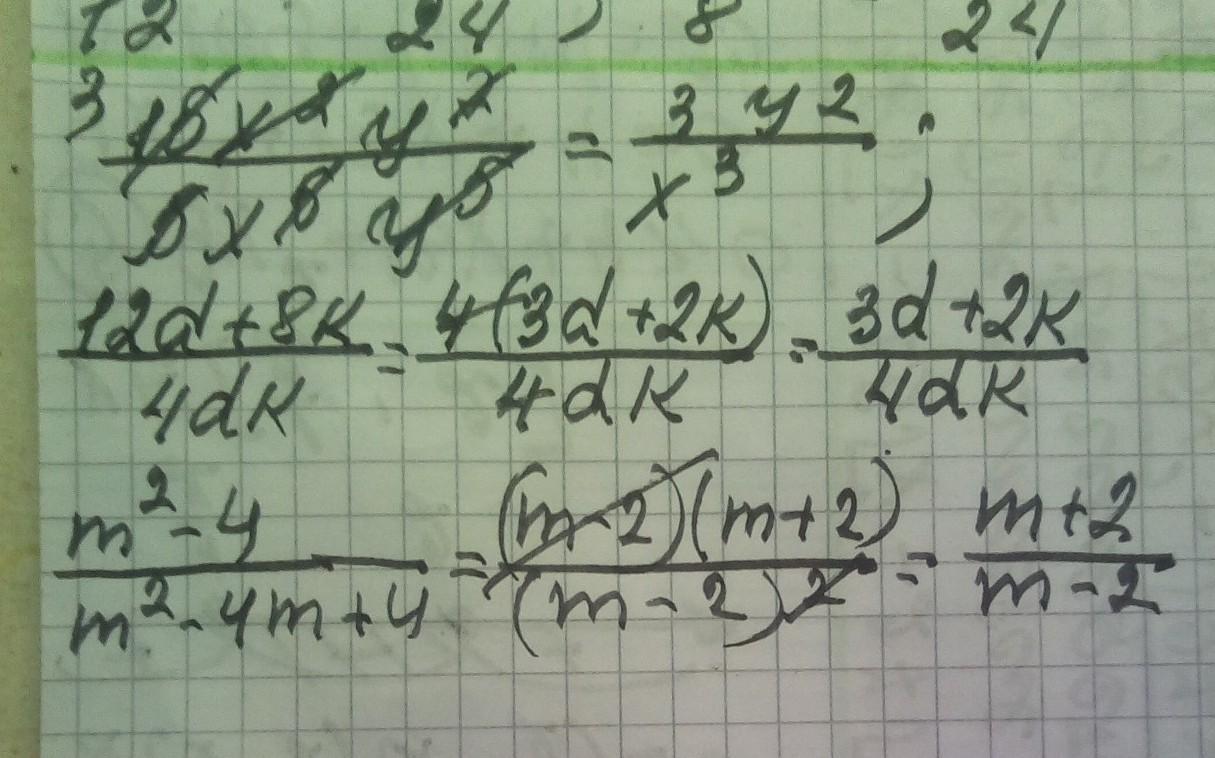 12 24 , 8 24
3 15x²y⁷/5x⁵y⁵ = 3y²/x³ ;
(12d+8k)/4dk = 4(3d+2k)/4dk = (3d+2k)/4dk
(m²-4)/(m²-4m+4) = (m-2)(m+2)/(m-2)² = (m+2)/(m-2)